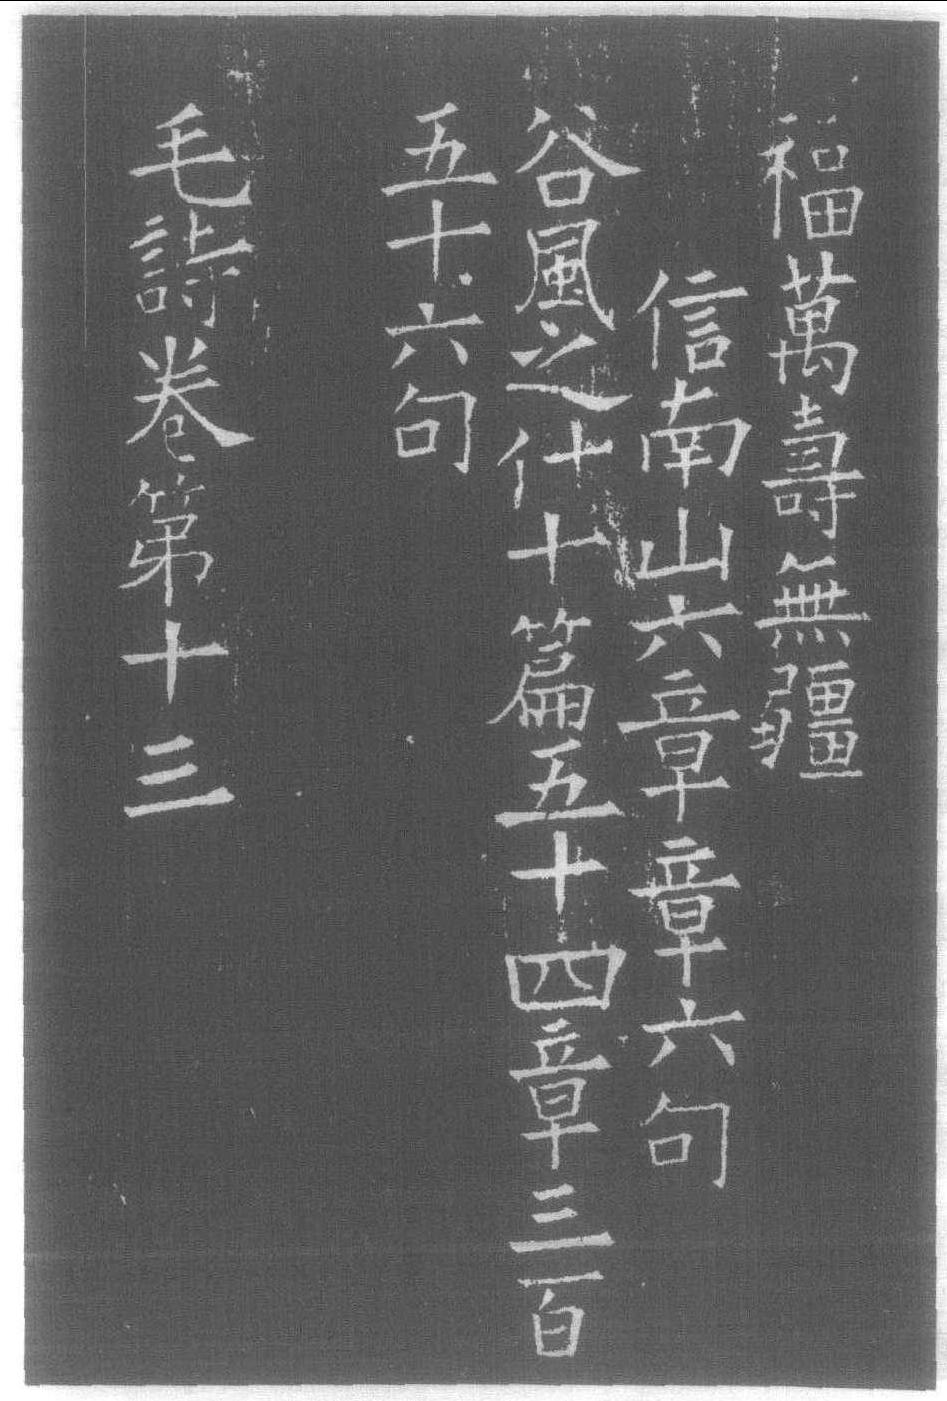 福萬壽無疆
信南山六章章六句
谷風之什十篇五十四章三百
五十六句
毛詩卷第十三